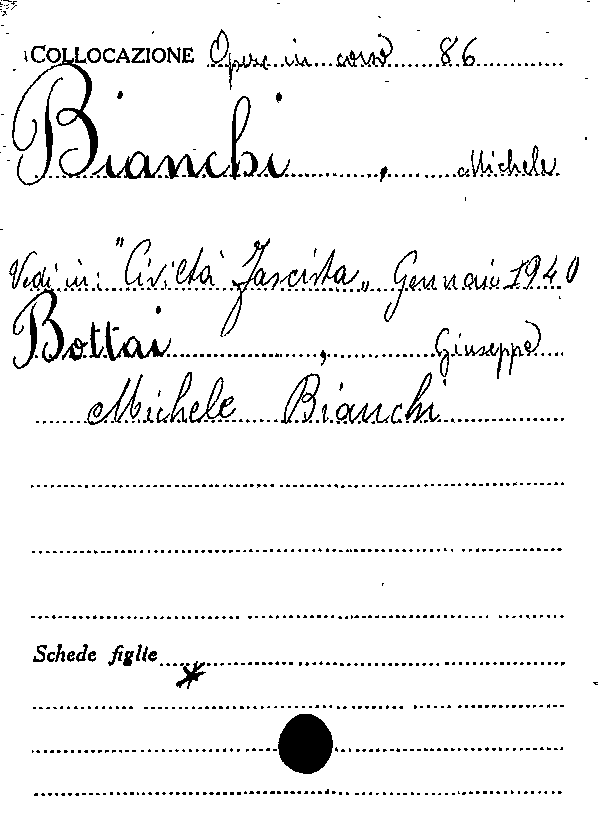 COLLOCAZIONE Opere in corso 86
Bianchi, Michele
Vedi in: "Civiltà Fascista„ Gennaio 1940
Bottai, Giuseppe
Michele Bianchi
Schede figlie
*